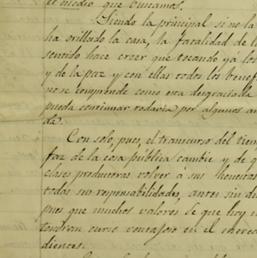 el medio que buscamos.
Siendo la principal si no la
ha orillado la casa, la fatalidad de l
sentido hace creer que tocando ya los
y de la paz y con ellas todos los benef
no se comprende como esta desgraciada
pueda continuar todavia por algunos a
da.
Con solo, pues, el transcurso del tiem
faz de la cosa publica cambie y de q
clases productoras volver á sus honestas
todas sus responsabilidades, antes sin di
pues que muchos valores de que hoy n
curso en el merca